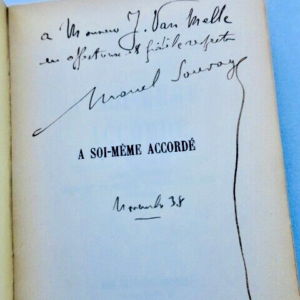 a Monsieur J. Van Melle
en affectueux et fidèle respect
Marcel Sauvage
A SOI-MÊME ACCORDÉ
Novembre 38